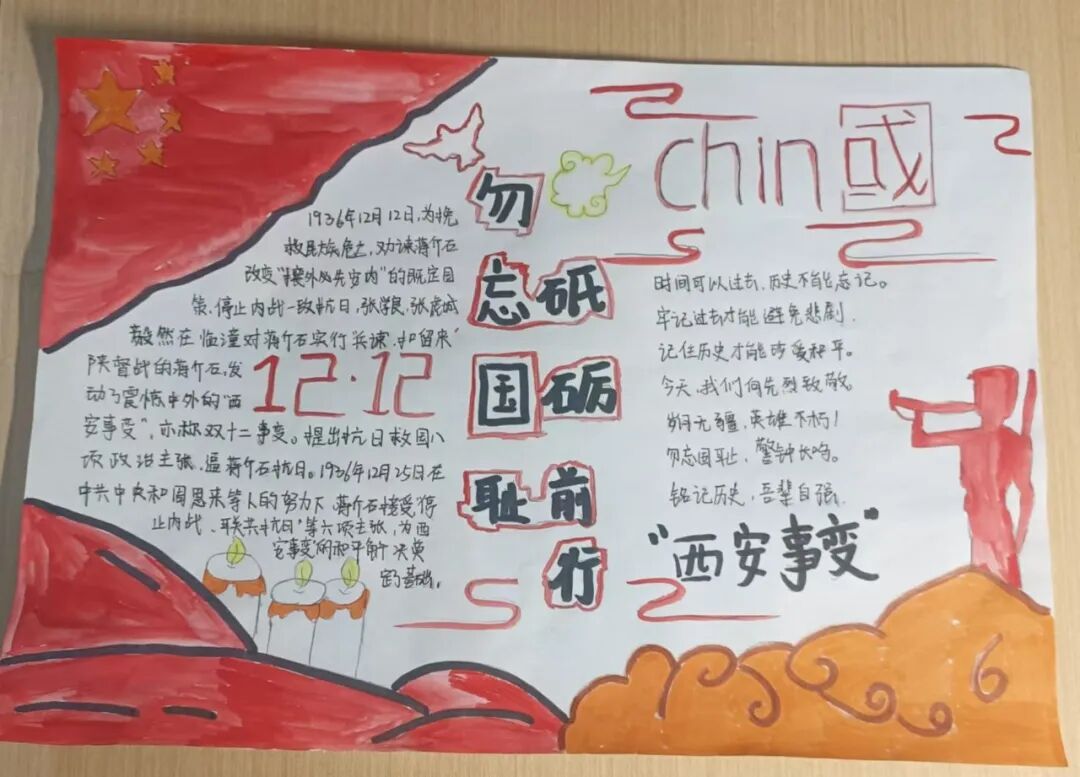 勿忘国耻
砥砺前行
chin國
1936年12月12日,为挽
救民族危亡,劝谏蒋介石
改变"攘外必先安内"的既定国
策,停止内战一致抗日,张学良,张虎城
毅然在临潼对蒋介石实行兵谏,扣留来
陕督战的蒋介石,发
动了震惊中外的"西
安事变",亦称双十二事变。提出抗日救国八
项政治主张,逼蒋介石抗日。1936年12月25日在
中共中央和周恩来等人的努力下 蒋介石接受"停
止内战、联共抗日"等六项主张,为西
安事变"的和平解决奠
定了基础。
12·12
时间可以过去,历史不能忘记。
牢记过去才能避免悲剧.
记住历史才能珍爱和平。
今天,我们向先烈致敬。
岁月无疆,英雄不朽!
勿忘国耻,警钟长鸣。
铭记历史,吾辈自强.
"西安事变"